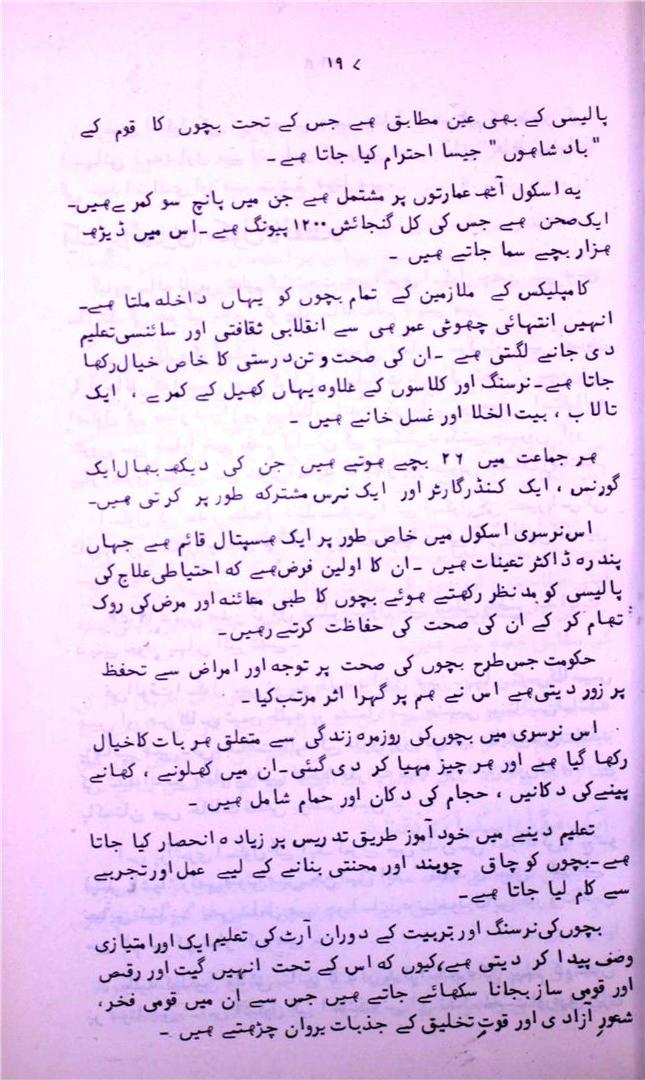 ۱۹۷
پالیسی کے بھی عین مطابق ہے جس کے تحت بچوں کا قوم کے
"بادشاہوں" جیسا احترام کیا جاتا ہے۔
یہ اسکول آٹھ عمارتوں پر مشتمل ہے جن میں پانچ سو کمرے ہیں۔
ایک صحن ہے جس کی کل گنجائش ۱۲۰۰ پیونگ ہے۔ اس میں ڈیڑھ
ہزار بچے سما جاتے ہیں ۔
کامپلیکس کے ملازمین کے تمام بچوں کو یہاں داخلہ ملتا ہے۔
انہیں انتہائی چھوٹی عمر ہی سے انقلابی ثقافتی اور سائنسی تعلیم
دی جانے لگتی ہے ۔ ان کی صحت و تن درستی کا خاص خیال رکھا
جاتا ہے۔ نرسنگ اور کلاسوں کے علاوہ یہاں کھیل کے کمرے ، ایک
تالاب ، بیت الخلا اور غسل خانے ہیں ۔
ہر جماعت میں ۲۶ بچے ہوتے ہیں جن کی دیکھ بھال ایک
گورنس ، ایک کنڈرگارٹر اور ایک نرس مشترکہ طور پر کرتی ہیں۔
اس نرسری اسکول میں خاص طور پر ایک ہسپتال قائم ہے جہاں
پندرہ ڈاکٹر تعینات ہیں ۔ ان کا اولین فرض ہے کہ احتیاطی علاج کی
پالیسی کو مدنظر رکھتے ہوئے بچوں کا طبی معائنہ اور مرض کی روک
تھام کر کے ان کی صحت کی حفاظت کرتے رہیں۔
حکومت جس طرح بچوں کی صحت پر توجہ اور امراض سے تحفظ
پر زور دیتی ہے اس نے ہم پر گہرا اثر مرتب کیا ۔
اس نرسری میں بچوں کی روزمرہ زندگی سے متعلق ہر بات کا خیال
رکھا گیا ہے اور ہر چیز مہیا کر دی گئی۔ ان میں کھلونے ، کھانے
پینے کی دکانیں ، حجام کی دکان اور حمام شامل ہیں ۔
تعلیم دینے میں خود آموز طریق تدریس پر زیادہ انحصار کیا جاتا
ہے۔ بچوں کو چاق چوبند اور محنتی بنانے کے لیے عمل اور تجربے
سے کام لیا جاتا ہے۔
بچوں کی نرسنگ اور تربیت کے دوران آرٹ کی تعلیم ایک اور امتیازی
وصف پیدا کر دیتی ہے، کیوں کہ اس کے تحت انہیں گیت اور رقص
اور قومی ساز بجانا سکھائے جاتے ہیں جس سے ان میں قومی فخر،
شعورِ آزادی اور قوتِ تخلیق کے جذبات پروان چڑھتے ہیں ۔